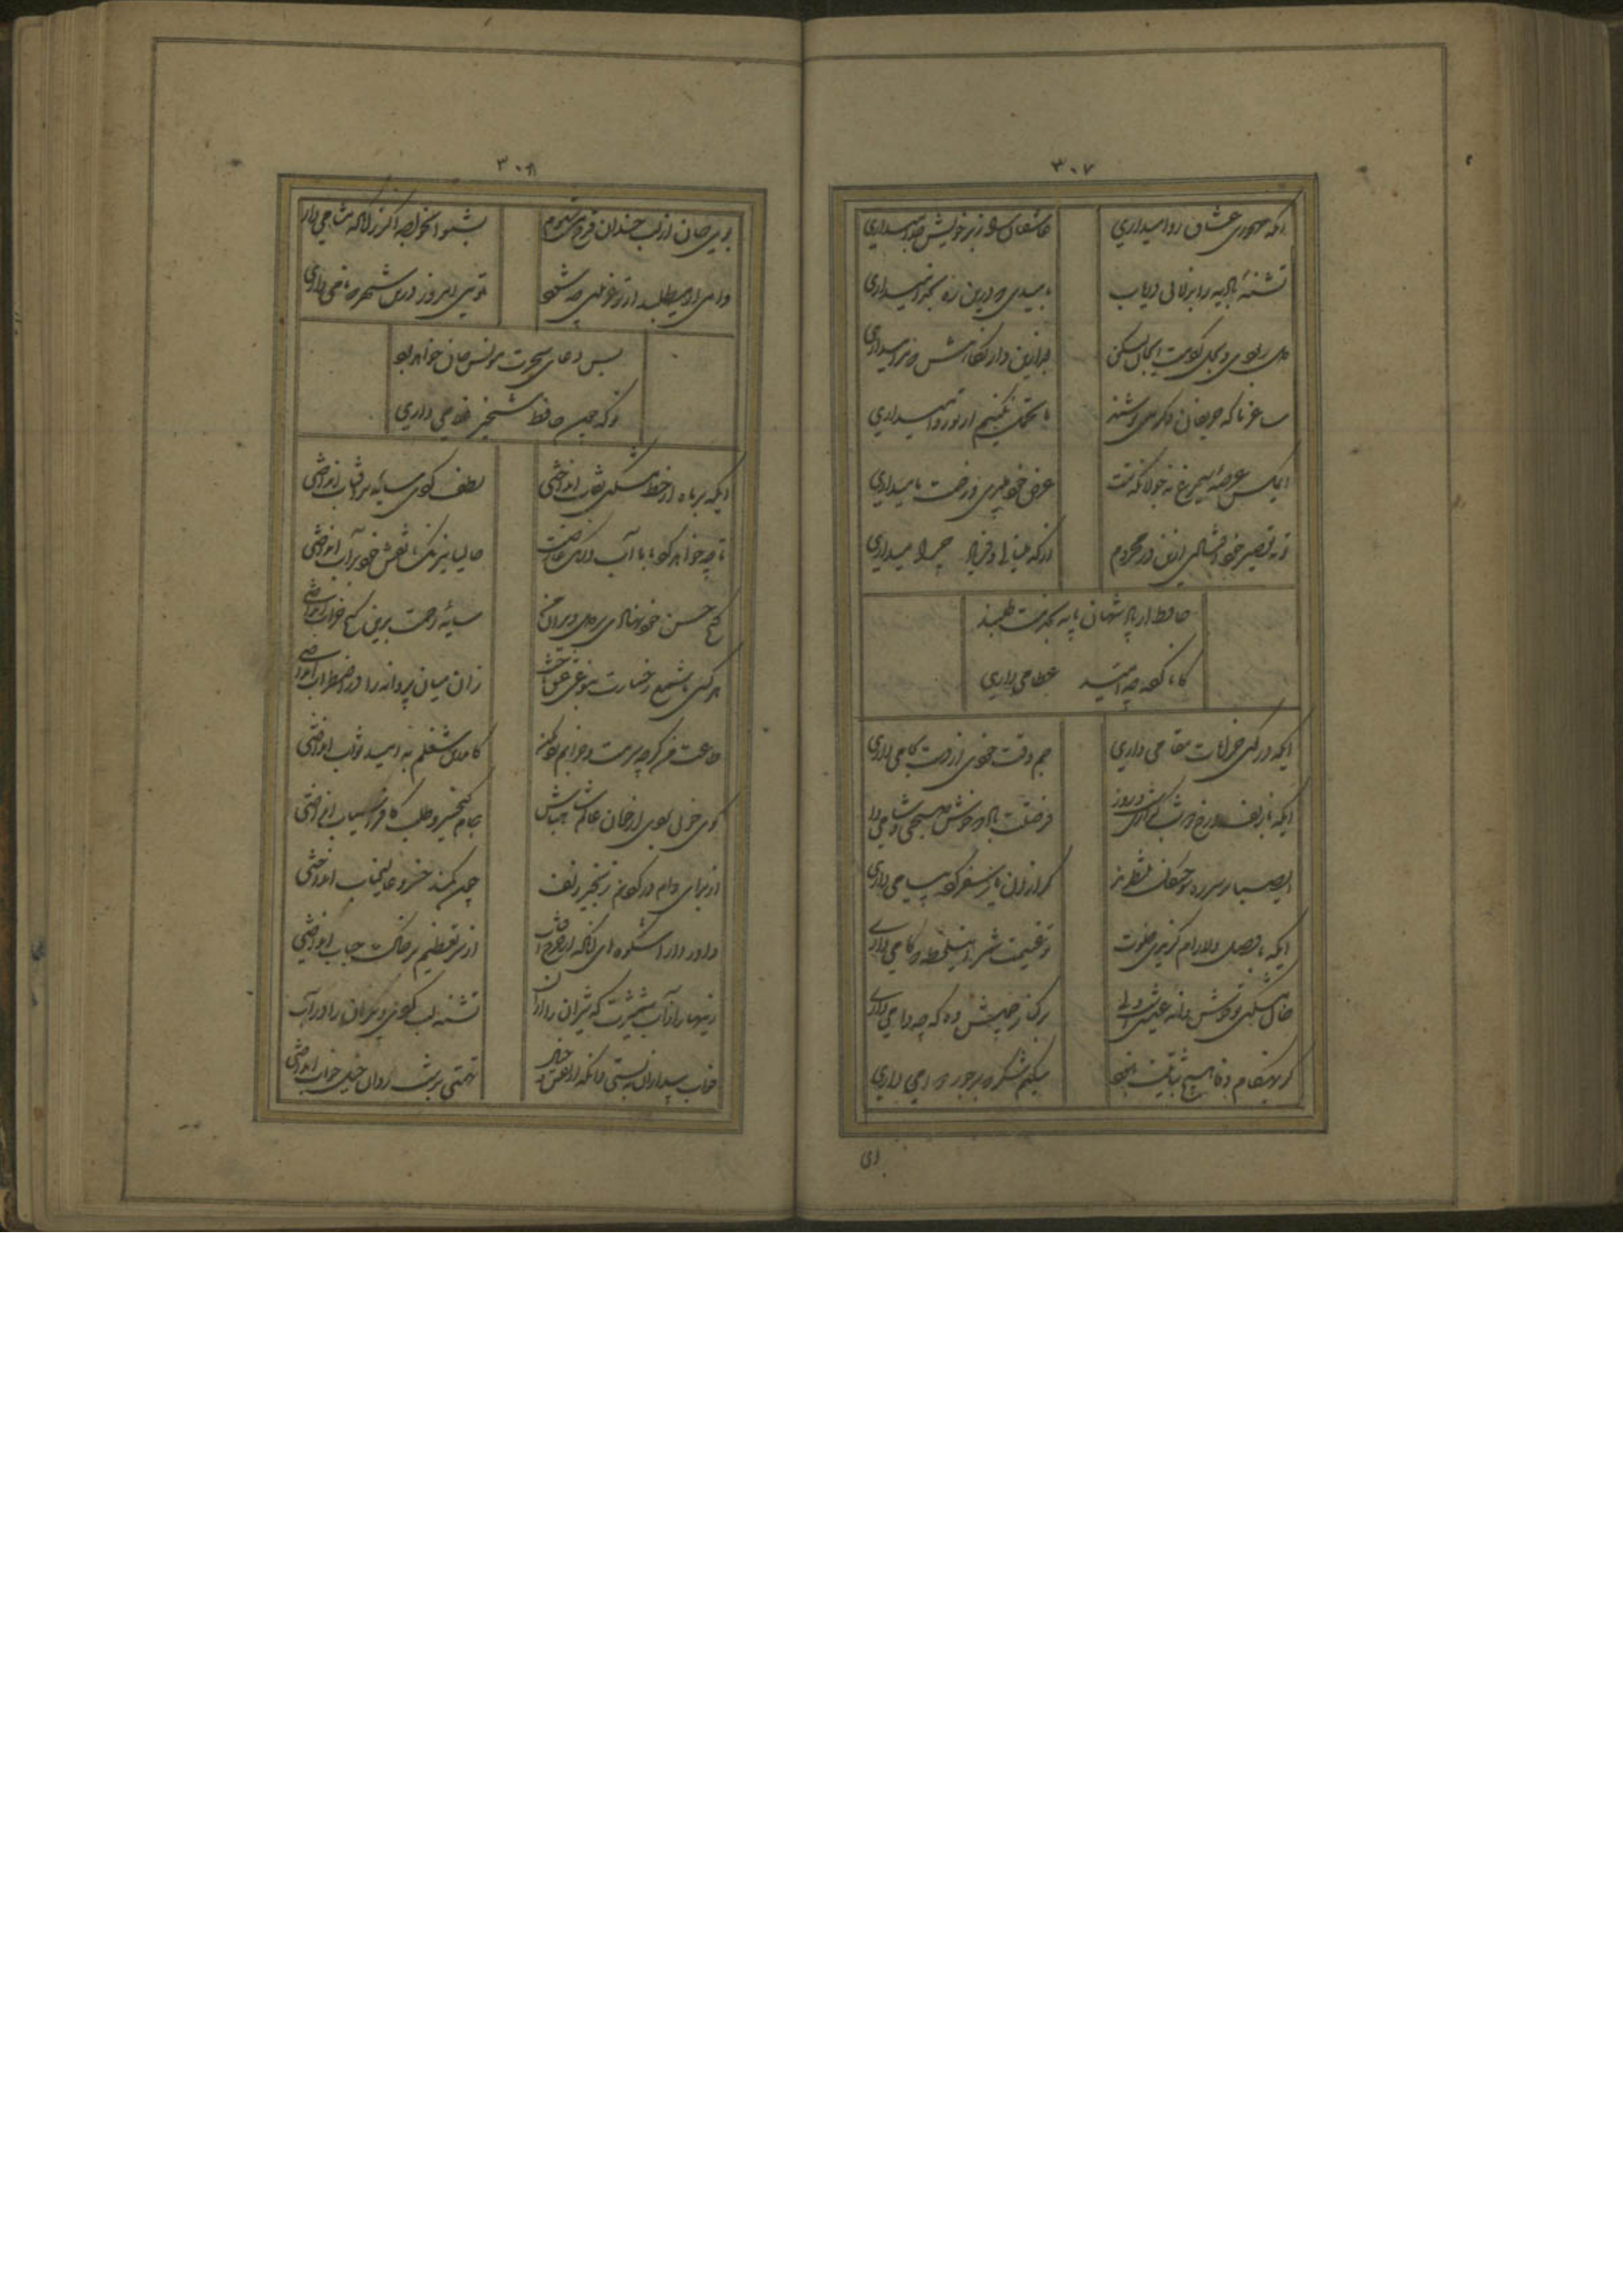 ۳۰۷
ایکه مهجوری عشاق روا میداری
عاشقان را ز بر خویش جدا میداری
تشنهٔ بادیه را بزلالی دریاب
بامیدی که درین ره بخدا میداری
دل ربودی و بحل کردمت ایجان لیکن
به ازین دار نگاهش که مرا میداری
ساغر ما که حریفان دگر می نوشند
ما تحمل نکنیم ار تو روا میداری
ای مگس عرصهٔ سیمرغ نه جولانگه تست
عرض خود میبری و زحمت ما میداری
تو به تقصیر خود افتادی ازین در محروم
از که مینالی و فریاد چرا میداری
حافظ از پادشهان پایه بخدمت طلبند
کار ناکرده چه امید عطا میداری
ایکه در کوی خرابات مقامی داری
جم وقت خودی ار دست بجامی داری
ایکه با زلف و رخ یار گذاری شب و روز
فرصتت باد که خوش صبحی و شامی داری
ای صبا سوختگان بر سر ره منتظرند
گر از آن یار سفر کرده پیامی داری
ایکه با وصل دلارام گزیدی خلوت
تو غنیمت شمر اینلحظه که کامی داری
خال مشکین تو خوش دانه عیشی ولی
بر کنار چمنش وه که چه دامی داری
گر بهنگام وفا هیچ ثباتیت نبود
میکنم شکر که بر جور دوامی داری
ای
۳۰۸
بوی جان از لب خندان قدح میشنوم
بشنو ایخواجه اگر زانکه مشامی داری
نامی ار میطلبد از تو غریبی چه شود
توئی امروز درین شهر که نامی داری
بس دعای سحرت مونس جان خواهد بود
تو که چون حافظ شبخیز غلامی داری
ایکه بر ماه از خط مشکین نقاب انداختی
لطف کردی سایهٔ بر آفتاب انداختی
تا چه خواهد کرد با ما آب و رنگ عارضت
حالیا نیرنگ نقش خود بر آب انداختی
گنج حسن خود نهادی در دل ویران من
سایهٔ رحمت برین کنج خراب انداختی
هر کسی با شمع رخسارت بنوعی عشق باخت
زان میان پروانه را در اضطراب انداختی
طاعت من گرچه از مستی خرابم رد مکن
کاندرین شغلم به امید ثواب انداختی
گوی خوبی بردی از خوبان عالم شاد باش
جام کیخسرو طلب کافراسیاب انداختی
از برای دام در گردن ز زنجیر زلف
چون کمند خسرو مالک رقاب انداختی
داور دارا شکوه ای آنکه تاج آفتاب
از سر تعظیم بر خاک جناب انداختی
زینهار از آب شمشیرت که شیران را از آن
تشنه لب کردی و گردان را در آب
خواب بیداران ببستی وانگه از نقش خیال
تهمتی بر شب روان خیل خواب انداختی